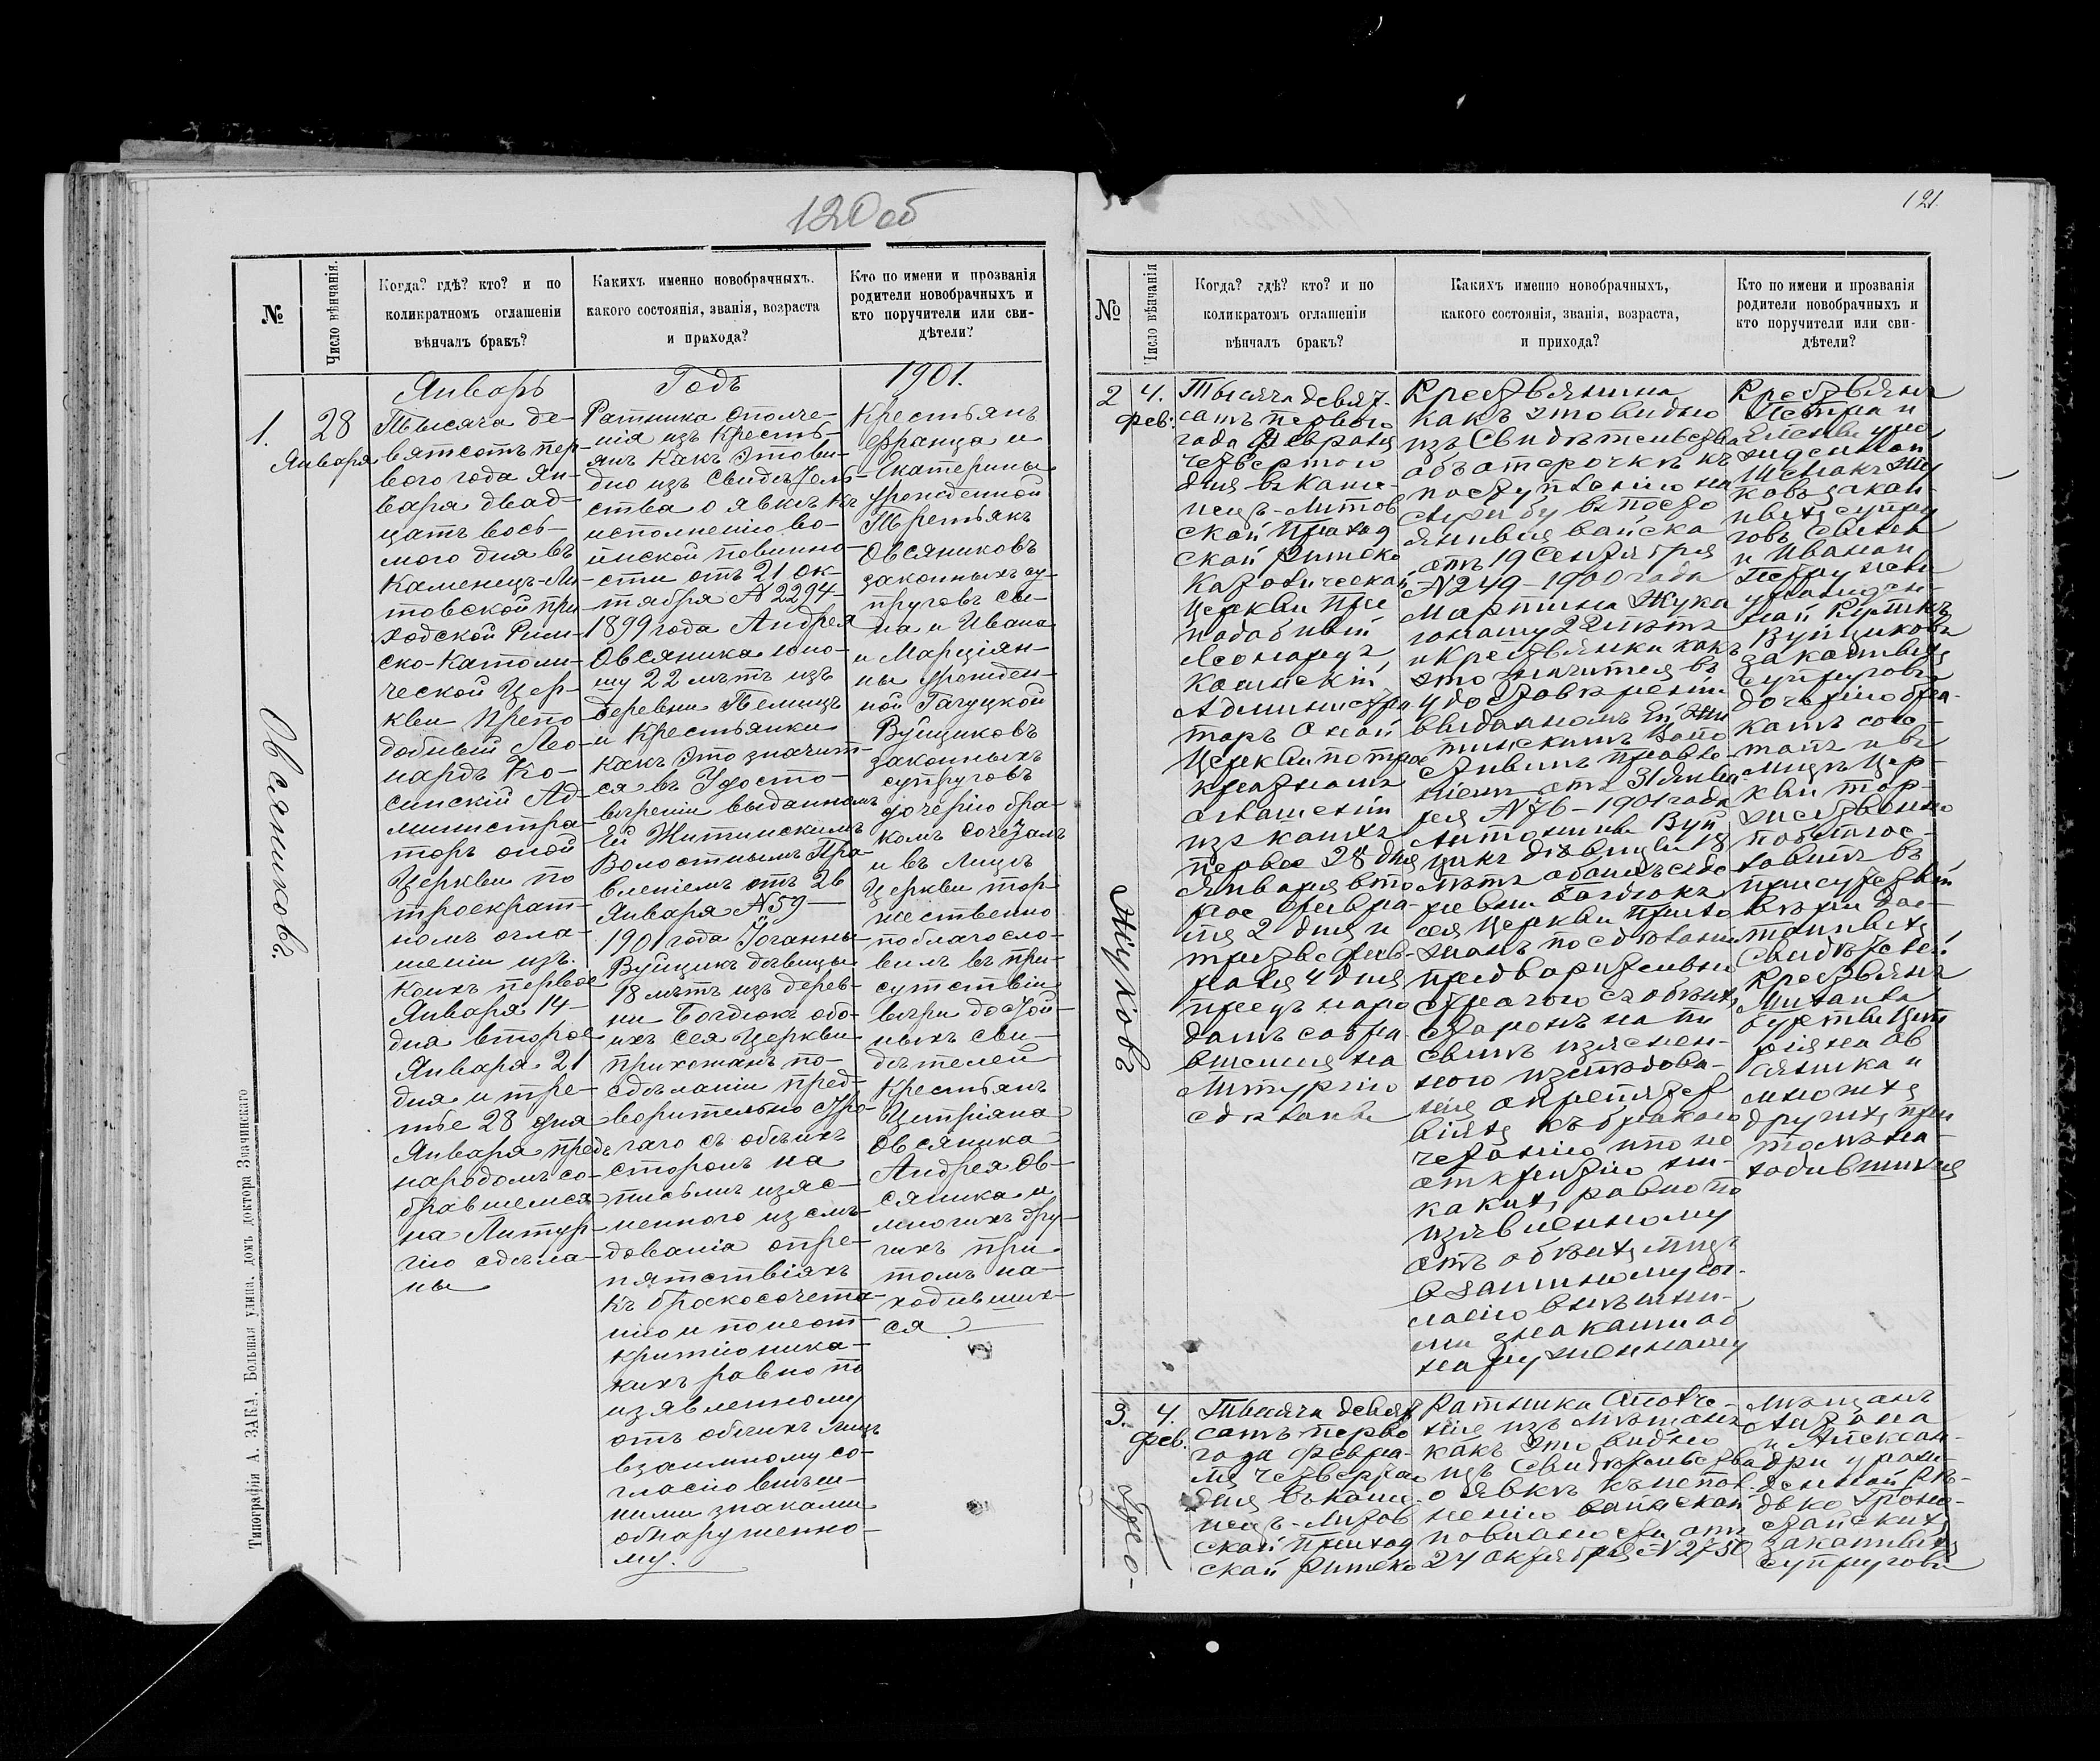 120 об
№
Число вѣнчанія.
Когда? гдѣ? кто? и по
коликратномъ оглашеніи
вѣнчалъ бракъ?
Какихъ именно новобрачныхъ.
какого состоянія, званія, возраста
и прихода?
Кто по имени и прозванія
родители новобрачныхъ и
кто поручители или сви-
дѣтели?
Январь
Годъ
1901.
1.
28
Января
Овсяниковъ.
Тысяча де-
вятсотъ пер-
вого года Ян-
варя двад-
цатъ вось-
мого дня въ
Каменецъ-Ли-
товской при
ходской Рим-
ско-Католи-
ческой Цер-
кви Препо
добный Лео-
нардъ Ко-
синскій Ад-
министра-
торъ оной
Церкви по
троекрат-
номъ огла-
шеніи изъ.
коихъ первое
Января 14-
дня второе
Января 21
дня и тре-
тье 28 дня
Января предъ
народомъ со-
бравшемся
на Литур-
гію сдѣла-
ны
Ратника ополче-
нія изъ Кресть-
янъ какъ это ви-
дно изъ свидѣтель-
ства о явкѣ къ
исполненію во-
инской повинно-
сти отъ 21 ок-
тября N 2294-
1899 года Андрея
Овсяника юно-
шу 22 лѣтъ изъ
деревни Пелищъ
и Крестьянки
какъ это значит-
ся въ Удосто-
вѣреніи выданномъ
Ей Житинскимъ
Волостнымъ Пра-
вленіемъ отъ 26
Января N 59-
1901 года Іоганны-
Вуйщикъ дѣвицы
18 лѣтъ изъ дерев-
ни Богдюкъ обо-
ихъ сея Церкви
прихожанъ по-
сдѣланіи пред-
ворительно стро-
гаго съ обѣихъ
сторонъ на
письмѣ изяс-
неннаго изслѣ-
дованія опре-
пятствіяхъ
къ бракосочета-
нію и понеот-
крытіюника-
кихъ равно по
изявленному
отъ обѣихъ лицъ
взаимному со-
гласію внѣш-
ними знаками
обнаруженно-
му.
Крестьянъ
Франца и
Екатерины
урожденной
Третьякъ
Овсяниковъ
законныхъ су-
пруговъ сы-
на и Ивана
и Марціян-
ны урожден-
ной Гачуцкой
Вуйщиковъ
законныхъ
супруговъ
дочерію бра-
комъ сочеталъ
и въ лицѣ
Церкви тор-
жественно
поблагосло-
вилъ въ при-
сутствіи
вѣри достой-
ныхъ сви-
дѣтелей
Крестьянъ
Цитріяна
Овсяника
Андрея Ов-
сяника и
многихъ дру-
гихъ при
томъ на-
ходивших-
ся
Типографія А. ЗАКА, Большая улица, домъ доктора Значинскаго
121.
№
Число вѣнчанія
Когда? гдѣ? кто? и по
коликратомъ оглашеніи
вѣнчалъ бракъ?
Какихъ именно новобрачныхъ,
какого состоянія, званія, возраста,
и прихода?
Кто по имени и прозванія
родители новобрачныхъ и
кто поручители или сви-
дѣтели?
2
4.
фев.
Жуковъ
Тысяча девят-
сатъ первого
года Февраля
четвертого
дня въ Каме-
нецъ-Литов
ской Приход
ской Римско
Католической
Церкви Пре
подобный
Леонардъ
Косинскій
Администра
торъ Оной
Церкви по трое
кратномъ
оглашеніи
изъ коихъ
первое 28 дня
Января вто
рое февра-
ля 2 дня и
третье фев-
раля 4 дня
предъ наро
домъ собра
вшемся на
Литургію
сдѣланы
Крестьянина
какъ это видно
изъ Свидѣтельства
объ отсрочкѣ къ
поступленію на
службу въ посто
янныя войска
отъ 19 Сентября
N 249-1900 года
Мартина Жука
юношу 22 лѣтъ
и Крестьянки какъ
это значится въ
удостовѣреніи
выданномъ Ей Жи
тинскимъ Воло
стнымъ Правле-
ніемъ отъ 31 Янва
ря N 76-1901 года
Антонины Вуй
щикъ дѣвицы 18
лѣтъ обоихъ съ де
ревни Богдюкъ
сея Церкви Прихо
жанъ по сдѣланіи
предварительно
строгого съ обѣихъ
сторонъ на пи
смѣ изяснен-
ного изслѣдова-
нія опрепятст
віяхъ къ бракосо
четанію и по не
открытію ни-
какихъ равно по
изявленному
отъ обѣихъ лицъ
взаимному сог-
ласію внѣшни-
ми знаками об
наруженному
Крестьянъ
Петра и
Елены уро
жденной
Шемакъ Жу
ковъ закон-
ныхъ супру
говъ Сына
и Ивана и
Петрунели
урожден-
ной Куприкъ
Вуйщиковъ
законныхъ
супруговъ
дочерію бра-
комъ соче-
талъ и въ
лицѣ Цер-
кви тор-
жественно
поблагос-
ловилъ въ
присутствіи
вѣри дос-
тойныхъ
Свидѣтелей
Крестьянъ
Михаила
Цит
ріяна Ов
сяника и
многихъ
другихъ при
томъ на-
ходившихся
3.
4.
фев.
Тысяча девят
сатъ перво
го да Февра-
ля четвертаго
дня въ Каме
нецъ-Литов
ской Приход
ской Римско
Ратника Ополче-
нія изъ Мѣщанъ
какъ это видно
изъ Свидѣтельства
о явкѣ къ испол
ненію воинской
повинности отъ
24 октября N 2750
Мѣщанъ
Антона
и Алексан-
дри урож-
денной Рѣ-
дько
законныхъ
супруговъ